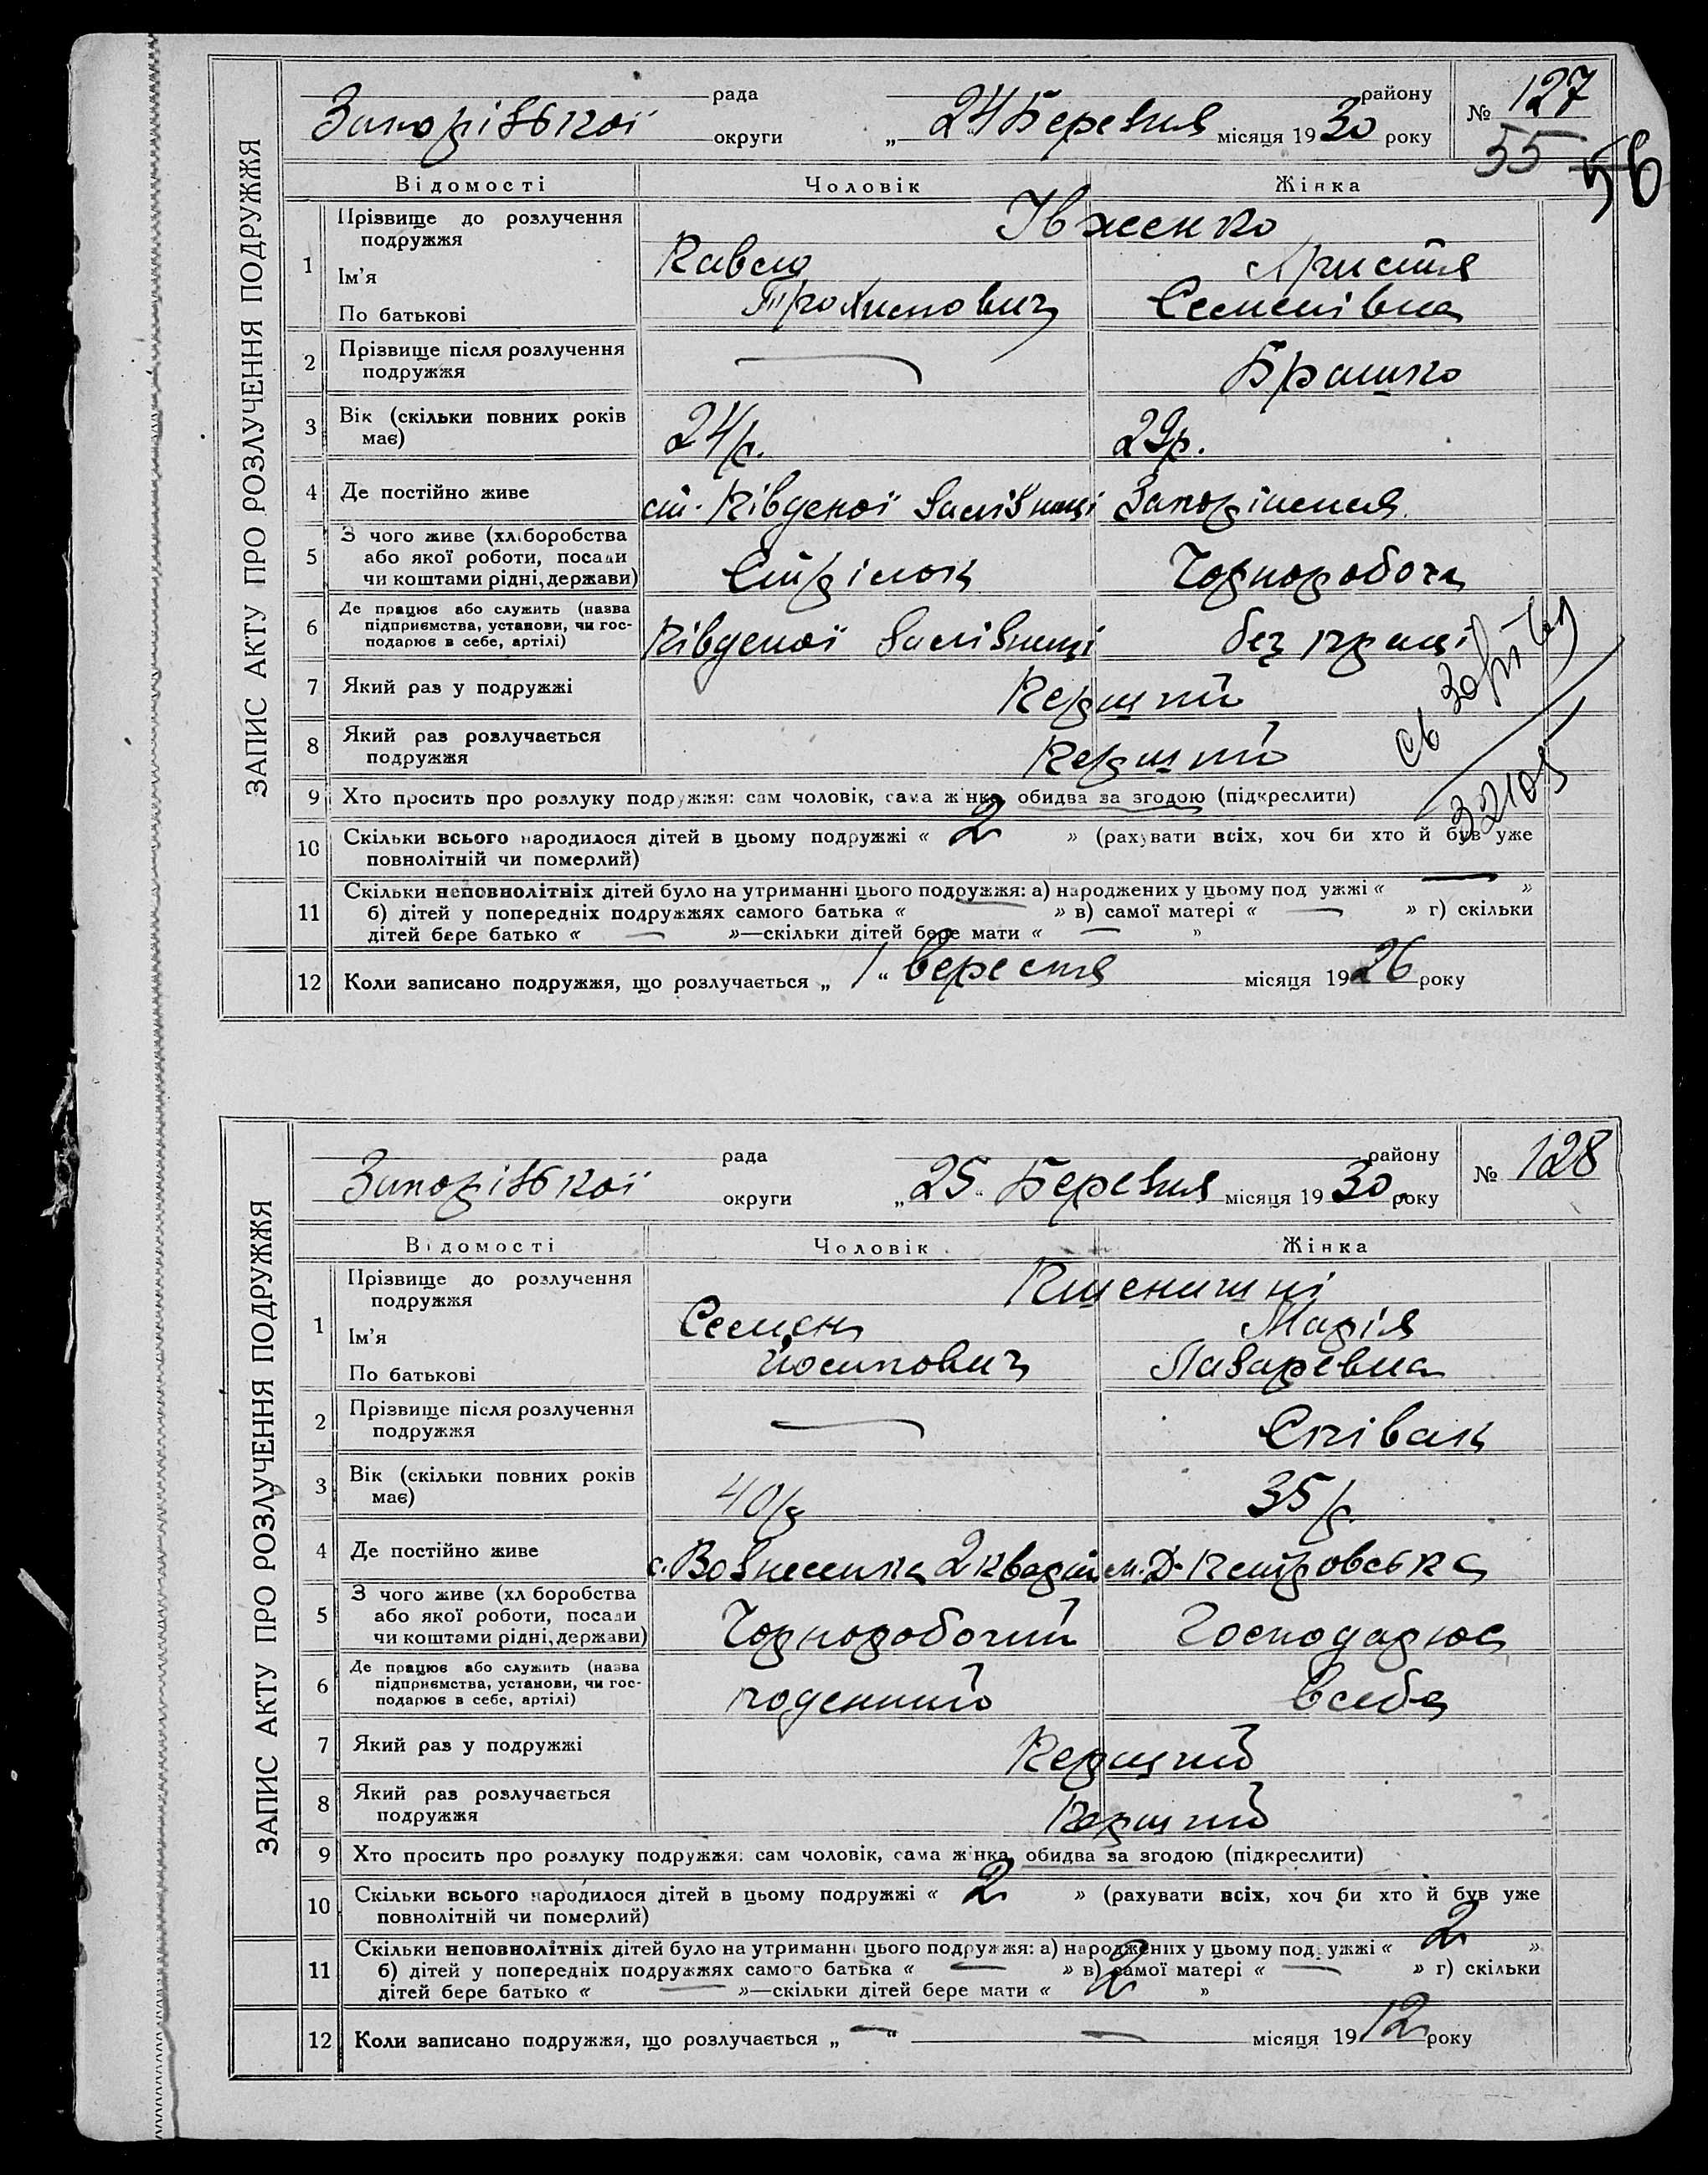 ЗАПИС АКТУ ПРО РОЗЛУЧЕННЯ ПОДРУЖЖЯ
рада району
Запорізької округи „ 24 Березня місяця 1930 року
№ 127
55 56
Відомості Чоловік Жінка
1 Прізвище до розлучення подружжя Івженко
Ім'я Павло Христя
По батькові Трохимович Семенівна
2 Прізвище після розлучення подружжя — Брашко
3 Вік (скільки повних років має) 24 р. 29 р.
4 Де постійно живе ст. Південої Залізниці Запоріжжя.
5 З чого живе (хліборобства або якої роботи, посади чи коштами рідні, держави) Стрілок Чорнороboча
6 Де працює або служить (назва підприємства, установи, чи господарює в себе, артілі) Південої Залізниці без праці
7 Який раз у подружжі Перший
8 Який раз розлучається подружжя Перший
9 Хто просить про розлуку подружжя: сам чоловік, сама жінка, обидва за згодою (підкреслити)
10 Скільки всього народилося дітей в цьому подружжі « 2 » (рахувати всіх, хоч би хто й був уже
повнолітній чи померлий)
11 Скільки неповнолітніх дітей було на утриманні цього подружжя: а) народжених у цьому подружжі « — »
б) дітей у попередніх подружжях самого батька « — » в) самої матері « — » г) скільки
дітей бере батько « — »—скільки дітей бере мати « — »
12 Коли записано подружжя, що розлучається „ 1 “ вересня місяця 1926 року
32105
ЗАПИС АКТУ ПРО РОЗЛУЧЕННЯ ПОДРУЖЖЯ
рада району
Запорізької округи „ 25 “ Березня місяця 1930. року
№ 128
Відомості Чоловік Жінка
1 Прізвище до розлучення подружжя Пшенишні
Ім'я Семен Марія
По батькові Йосипович Лазаревна
2 Прізвище після розлучення подружжя — Співак
3 Вік (скільки повних років має) 40 р 35 р.
4 Де постійно живе с. Вознесенка 2 кварт м. Д-петровська
5 З чого живе (хліборобства або якої роботи, посади чи коштами рідні, держави) Чорноробочий Господарює
6 Де працює або служить (назва підприємства, установи, чи господарює в себе, артілі) поденний всебе
7 Який раз у подружжі Перший
8 Який раз розлучається подружжя Перший
9 Хто просить про розлуку подружжя: сам чоловік, сама жінка, обидва за згодою (підкреслити)
10 Скільки всього народилося дітей в цьому подружжі « 2 » (рахувати всіх, хоч би хто й був уже
повнолітній чи померлий)
11 Скільки неповнолітніх дітей було на утриманні цього подружжя: а) народжених у цьому подружжі « 2 »
б) дітей у попередніх подружжях самого батька « — » в) самої матері « — » г) скільки
дітей бере батько « — »—скільки дітей бере мати « 2 »
12 Коли записано подружжя, що розлучається „ — “ — місяця 1912 року